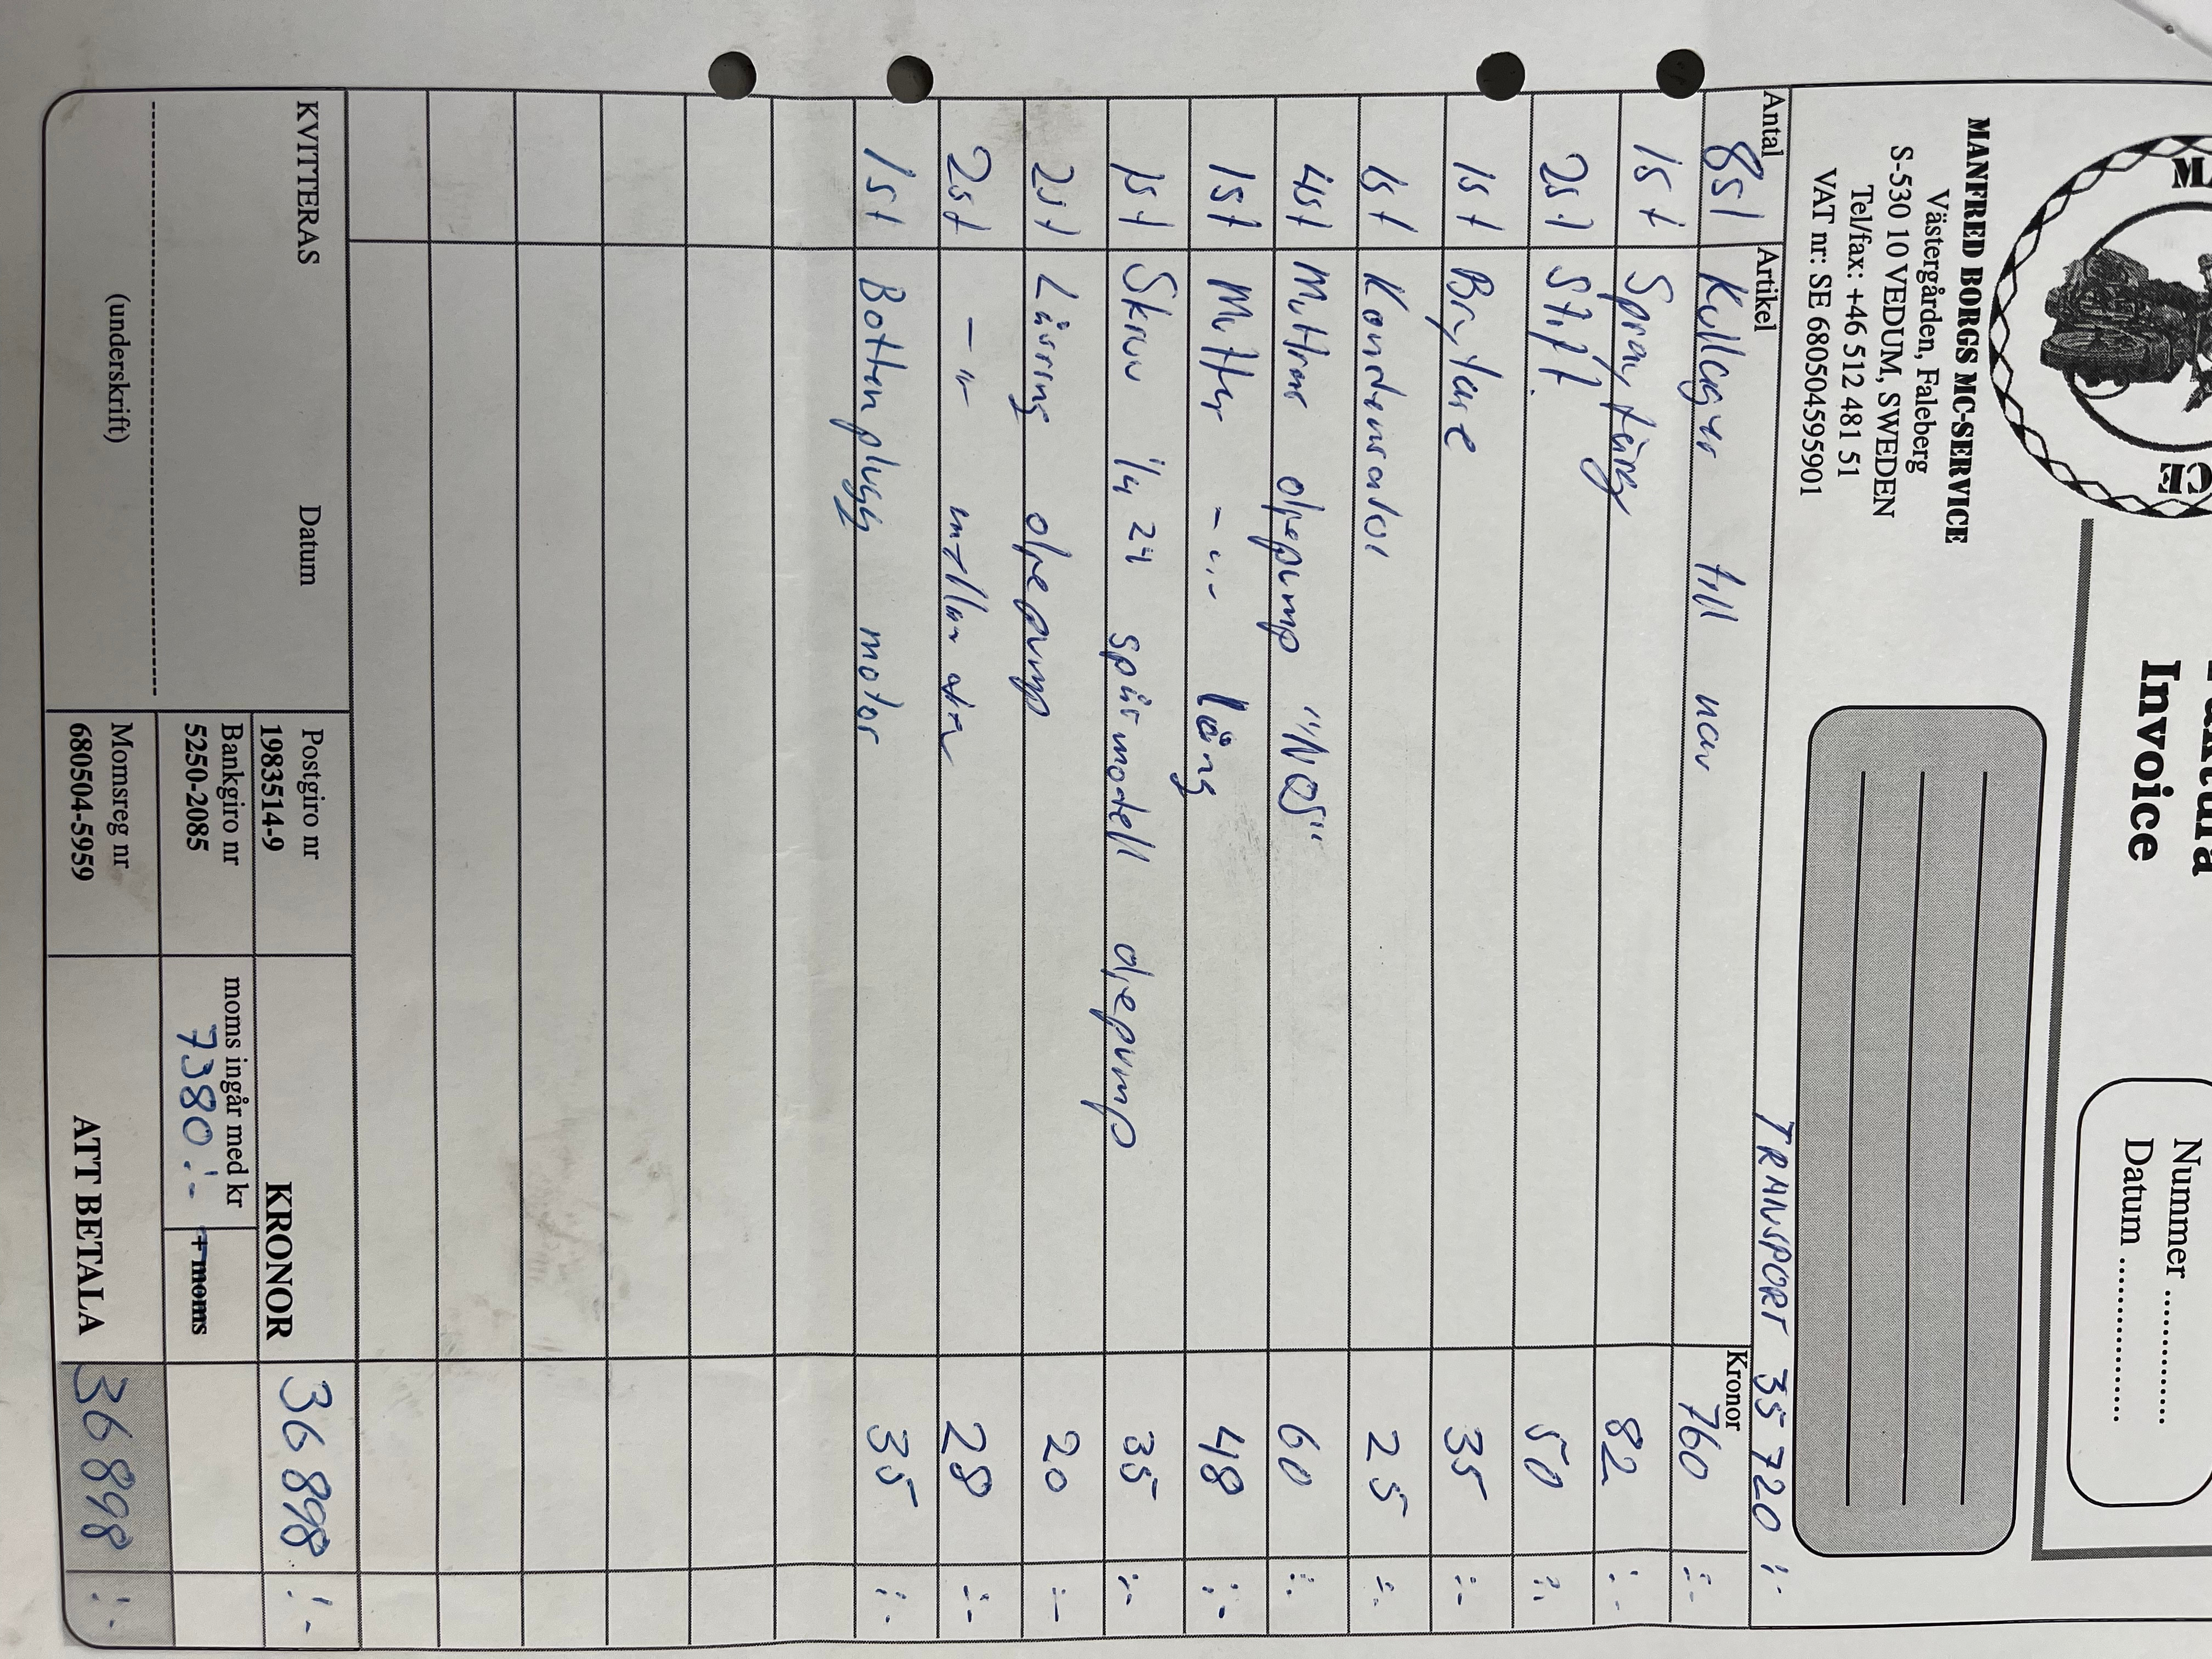 Invoice
Nummer ............
Datum ................
MANFRED BORGS MC-SERVICE
Västergården, Faleberg
S-530 10 VEDUM, SWEDEN
Tel/fax: +46 512 481 51
VAT nr: SE 680504595901
TRANSPORT 35 720 :-
Antal Artikel Kronor
8st Kullager till nav 760 :-
1st Sprayfärg 82 :-
2st Stift. 50 :-
1st Brytare 35 :-
1st Kondensator 25 :-
4st Muttrar oljepump "NOS" 60 :-
1st Mutter -"- lång 48 :-
1st Skruv 1/4 24 spårmodell oljepump 35 :-
2st Låsring oljepump 20 :-
2st -"- mellan 28 :-
1st Bottenplugg motor 35 :-
KVITTERAS Datum
(underskrift)
Postgiro nr
1983514-9
Bankgiro nr
5250-2085
Momsreg nr
680504-5959
KRONOR 36 898 :-
moms ingår med kr
7380:- + moms
ATT BETALA 36 898 :-